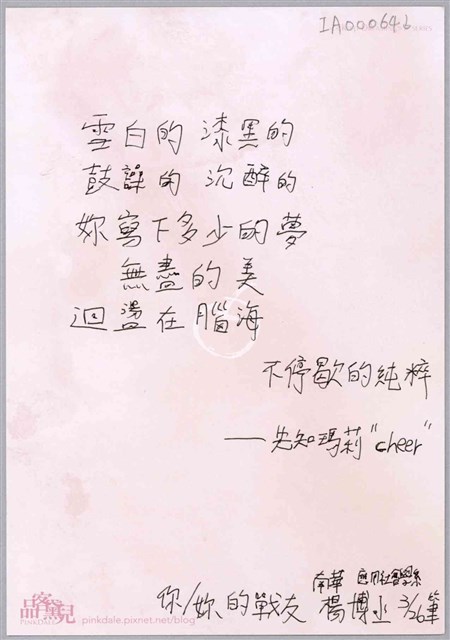 IA000646
雪白的 漆黑的
鼓譟的 沉醉的
妳寫下多少的夢
無盡的美
迴盪在腦海
不停歇的純粹
——先知瑪莉"cheer"
南華 應用社會學系
你/妳的戰友 楊博 3/26筆
品客黛兒
PINKDALE
pinkdale.pixnet.net/blog